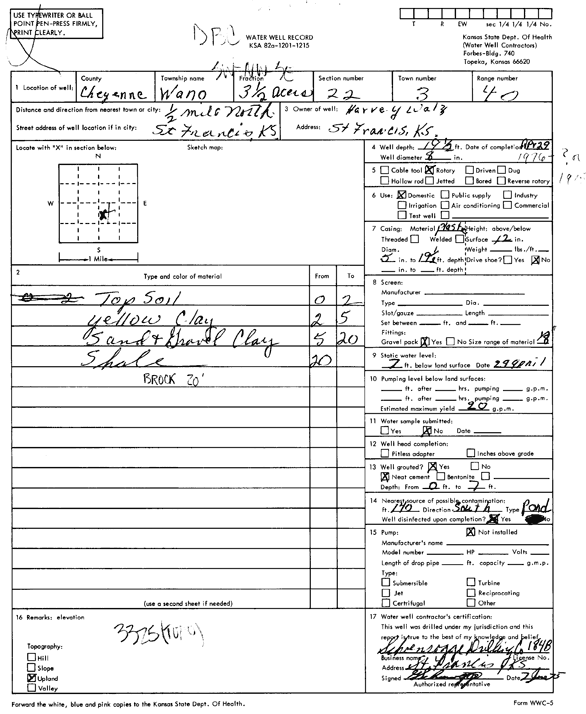 USE TYPEWRITER OR BALL
POINT PEN-PRESS FIRMLY,
PRINT CLEARLY.
DBC
WATER WELL RECORD
KSA 82a-1201-1215
T R EW sec 1/4 1/4 1/4 No.
Kansas State Dept. Of Health
(Water Well Contractors)
Forbes-Bldg. 740
Topeka, Kansas 66620
SW NW SE
1 Location of well: County Township name Fraction Section number Town number Range number
Cheyenne Wano 3 1/2 acers 22 3 40
Distance and direction from nearest town or city: 1/2 mile North
Street address of well location if in city: St Francis, KS
3 Owner of well: Harvey
Address: St Francis, KS.
Locate with "X" in section below: Sketch map:
N
W E
S
1 Mile
X
4 Well depth: 19 1/2 ft. Date of completion Apr 29
Well diameter 8 in. 1976
5 Cable tool X Rotary Driven Dug
Hollow rod Jetted Bored Reverse rotary
6 Use: X Domestic Public supply Industry
Irrigation Air conditioning Commercial
Test well
7 Casing: Material Plastic Height: above/below
Threaded Welded Surface 12 in.
Diam. Weight lbs./ft.
5 in. to 19 1/2 ft. depth Drive shoe? Yes X No
in. to ft. depth
2 Type and color of material From To
Top Soil 0 2
yellow Clay 2 5
Sand & Gravel Clay 5 20
Shale 20
BROCK 20'
(use a second sheet if needed)
8 Screen:
Manufacturer
Type Dia.
Slot/gauze Length
Set between ft. and ft.
Fittings:
Gravel pack X Yes No Size range of material
9 Static water level:
7 ft. below land surface Date 29 April
10 Pumping level below land surfaces:
ft. after hrs. pumping g.p.m.
ft. after hrs. pumping g.p.m.
Estimated maximum yield 20 g.p.m.
11 Water sample submitted:
Yes X No Date
12 Well head completion:
Pitless adapter Inches above grade
13 Well grouted? X Yes No
X Neat cement Bentonite
Depth: From 0 ft. to 7 ft.
14 Nearest source of possible contamination:
ft. 140 Direction South Type Pond
Well disinfected upon completion? X Yes No
15 Pump: X Not installed
Manufacturer's name
Model number HP Volts
Length of drop pipe ft. capacity g.m.p.
Type:
Submersible Turbine
Jet Reciprocating
Certrifugal Other
16 Remarks: elevation
3325 (TOPO)
Topography:
Hill
Slope
X Upland
Valley
17 Water well contractor's certification:
This well was drilled under my jurisdiction and this
report is true to the best of my knowledge and belief.
Drilling Co 184B
Business name License No.
Address St. Francis KS
Signed Date
Authorized representative
Forward the white, blue and pink copies to the Kansas State Dept. Of Health.
Form WWC-5